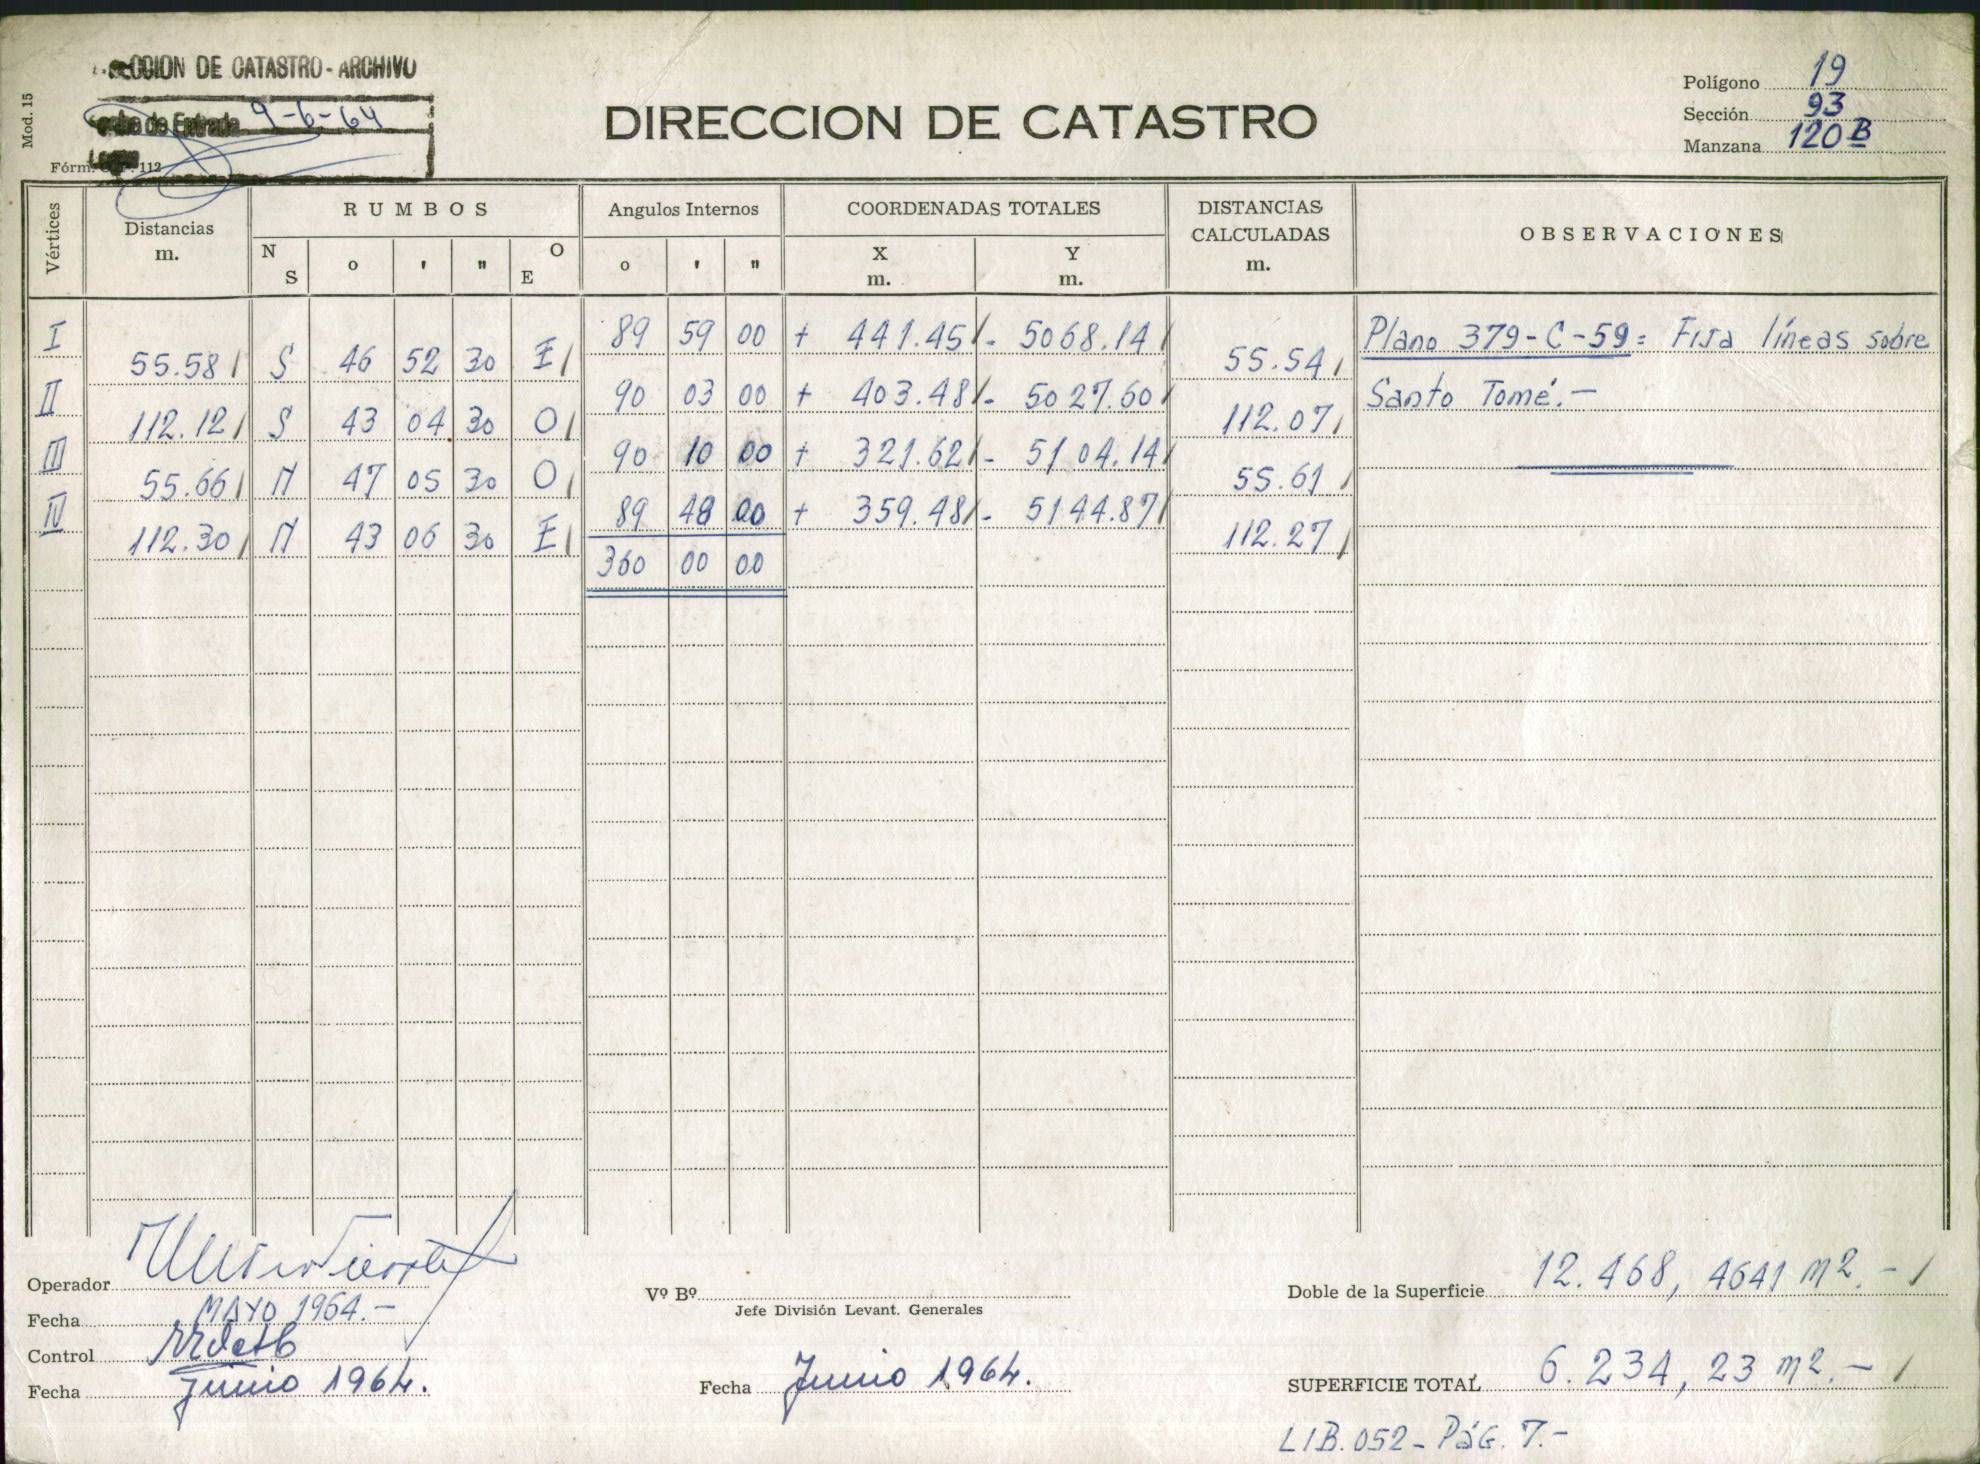 DE CATASTRO - ARCHIVO
9-6-64
Mod. 15
Fórm. 112
DIRECCION DE CATASTRO
Polígono 19
Sección 93
Manzana 120 B
Vértices
Distancias
m.
RUMBOS
N
S
o
'
"
O
E
Angulos Internos
o
'
"
COORDENADAS TOTALES
X
m.
Y
m.
DISTANCIAS
CALCULADAS
m.
OBSERVACIONES
I 89 59 00 + 441.45 - 5068.14 Plano 379-C-59: Fija líneas sobre
55.58 S 46 52 30 E 55.54
II 90 03 00 + 403.48 - 5027.60 Santo Tomé.-
112.12 S 43 04 30 O 112.07
III 90 10 00 + 321.62 - 5104.14
55.66 N 47 05 30 O 55.61
IV 89 48 00 + 359.48 - 5144.87
112.30 N 43 06 30 E 112.27
360 00 00
Operador
Fecha MAYO 1964.-
Control
Fecha Junio 1964.
Vº Bº
Jefe División Levant. Generales
Fecha Junio 1964.
Doble de la Superficie 12.468,4641 m2.-
SUPERFICIE TOTAL 6.234,23 m2.-
LIB.052 - Pág. 7.-